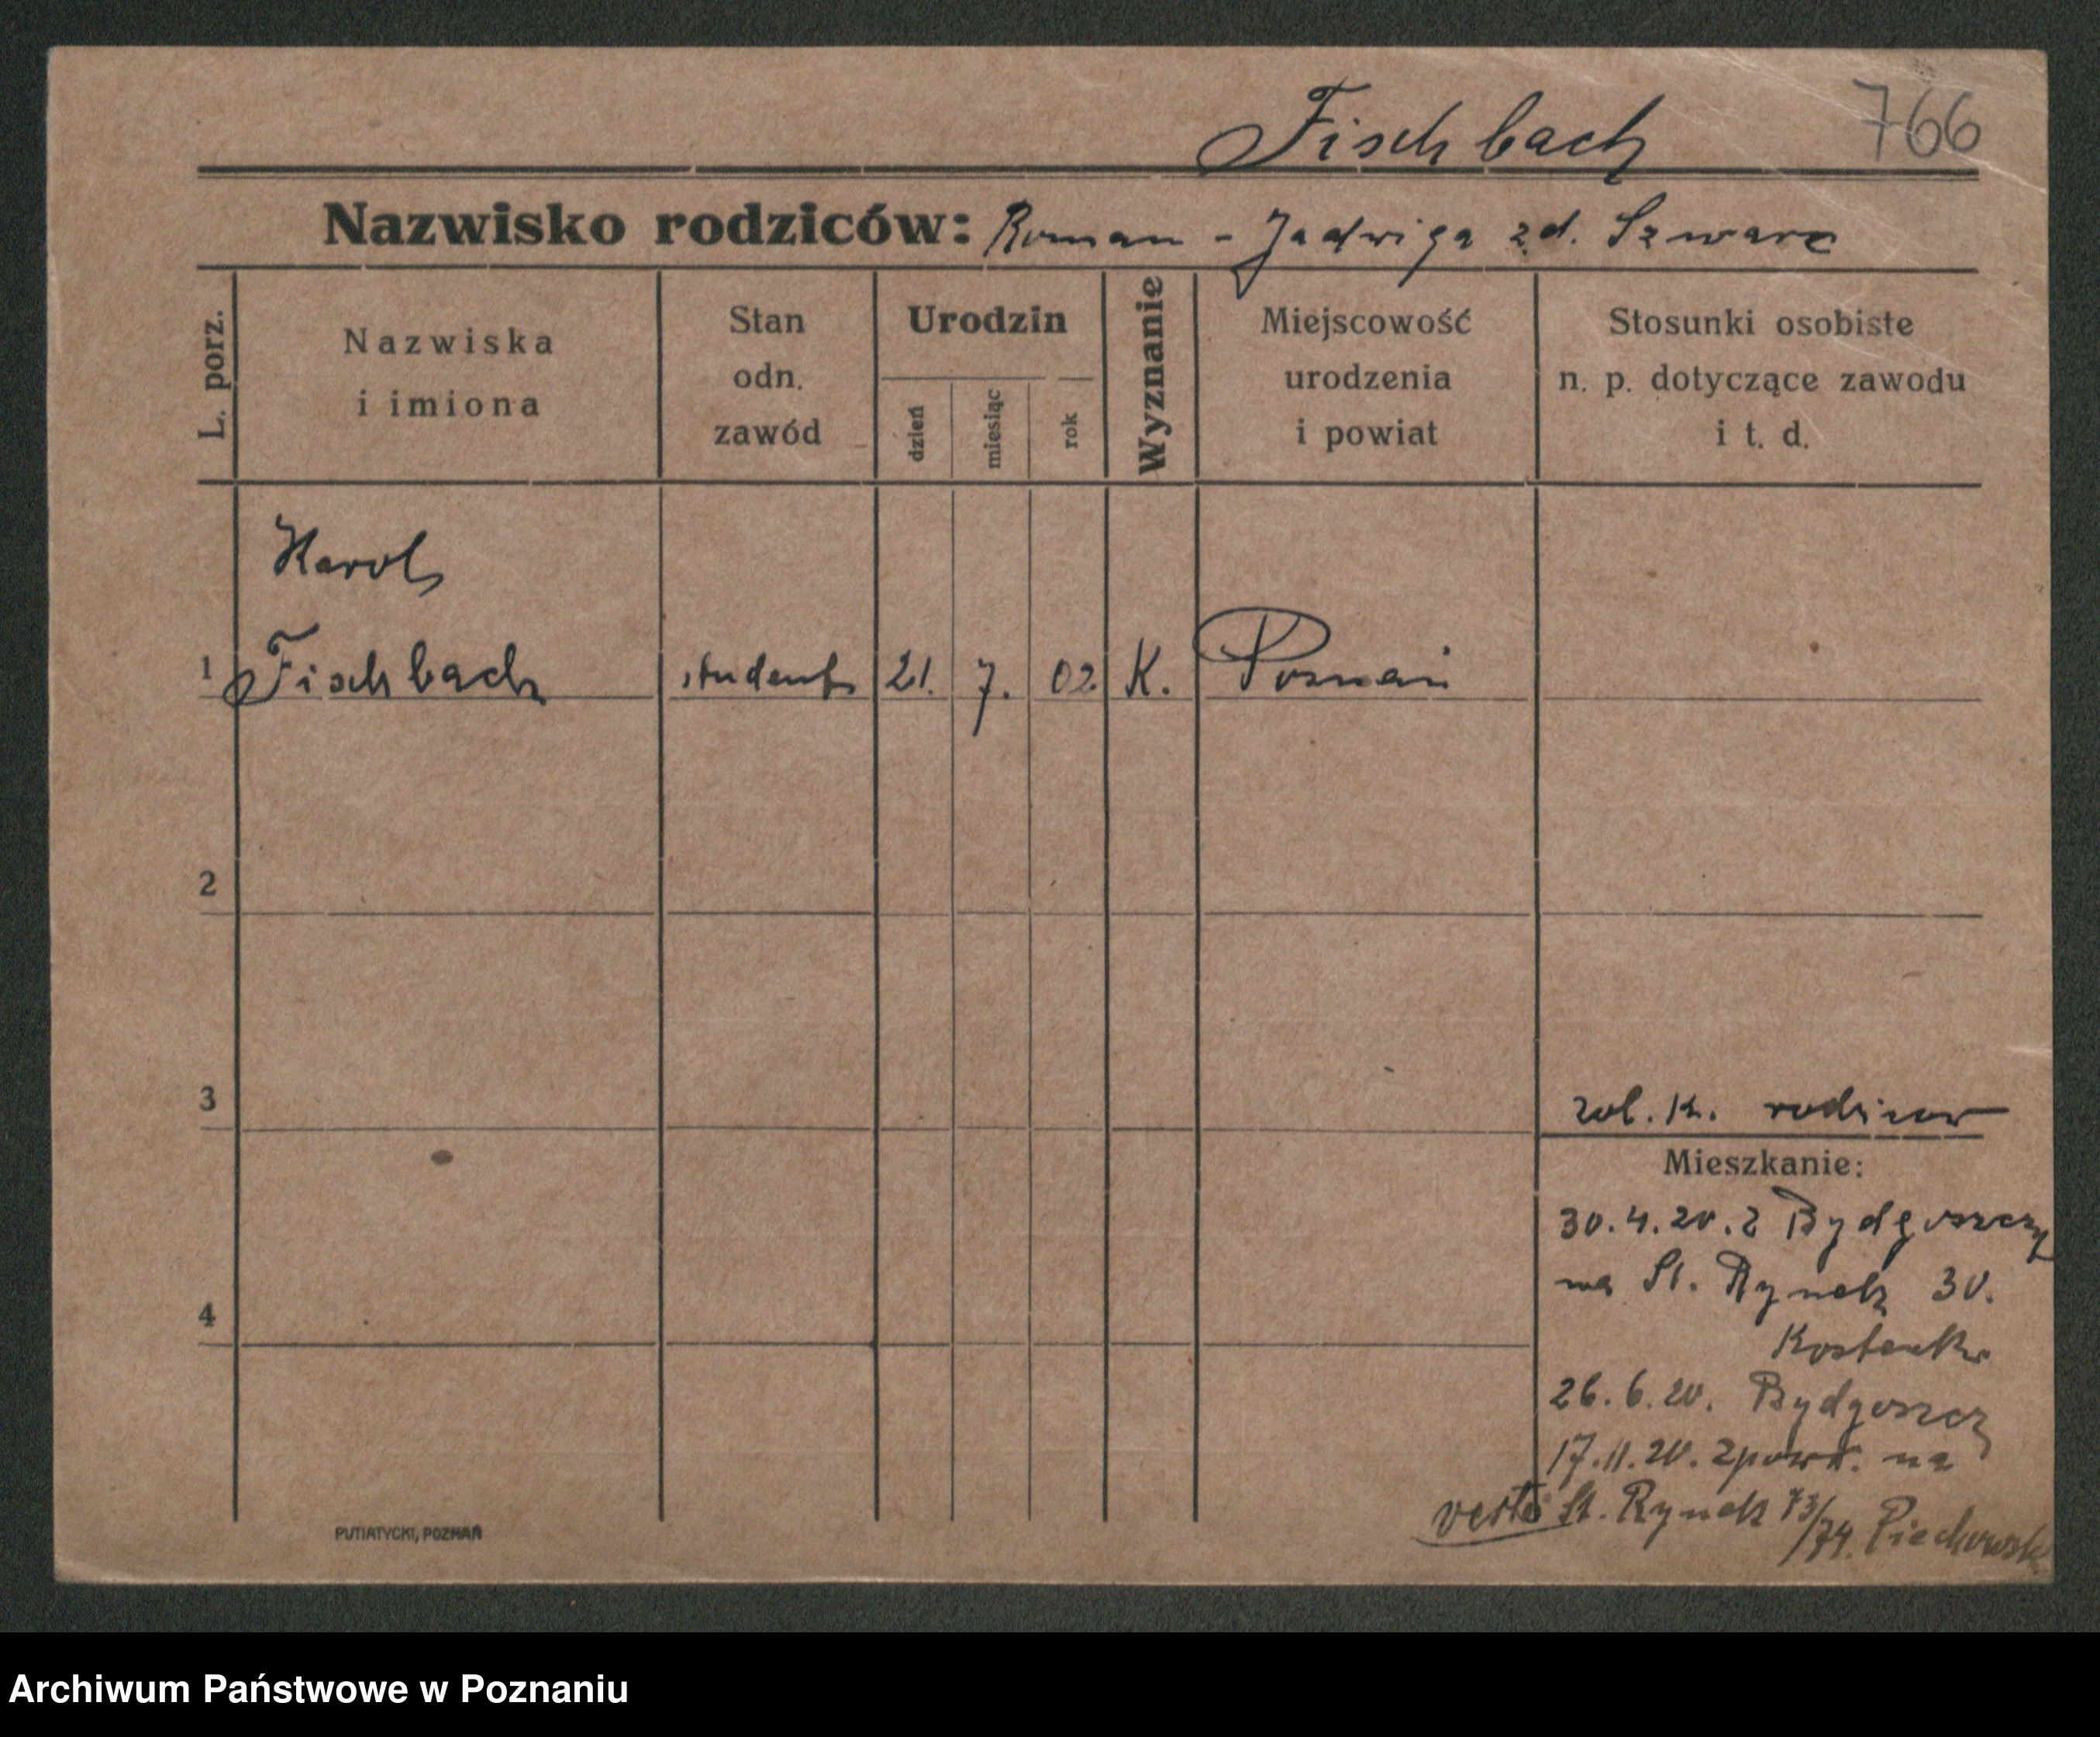 766
Fischbach
Nazwisko rodziców: Roman - Jadwiga zd. Szwarc
L. porz.
Nazwiska
i imiona
Stan
odn.
zawód
Urodzin
dzień
miesiąc
rok
Wyznanie
Miejscowość
urodzenia
i powiat
Stosunki osobiste
n. p. dotyczące zawodu
i t. d.
Karol
1 Fischbach student 21. 7. 02. K. Poznań
2
3
zob. k. rodziców
Mieszkanie:
30.4.20. z Bydgoszczy
na St. Rynek 30.
4
26.6.20. Bydgoszcz
17.11.20. zpowr. na
verte St. Rynek 73/74. Piechowski
PUTIATYCKI, POZNAŃ
Archiwum Państwowe w Poznaniu